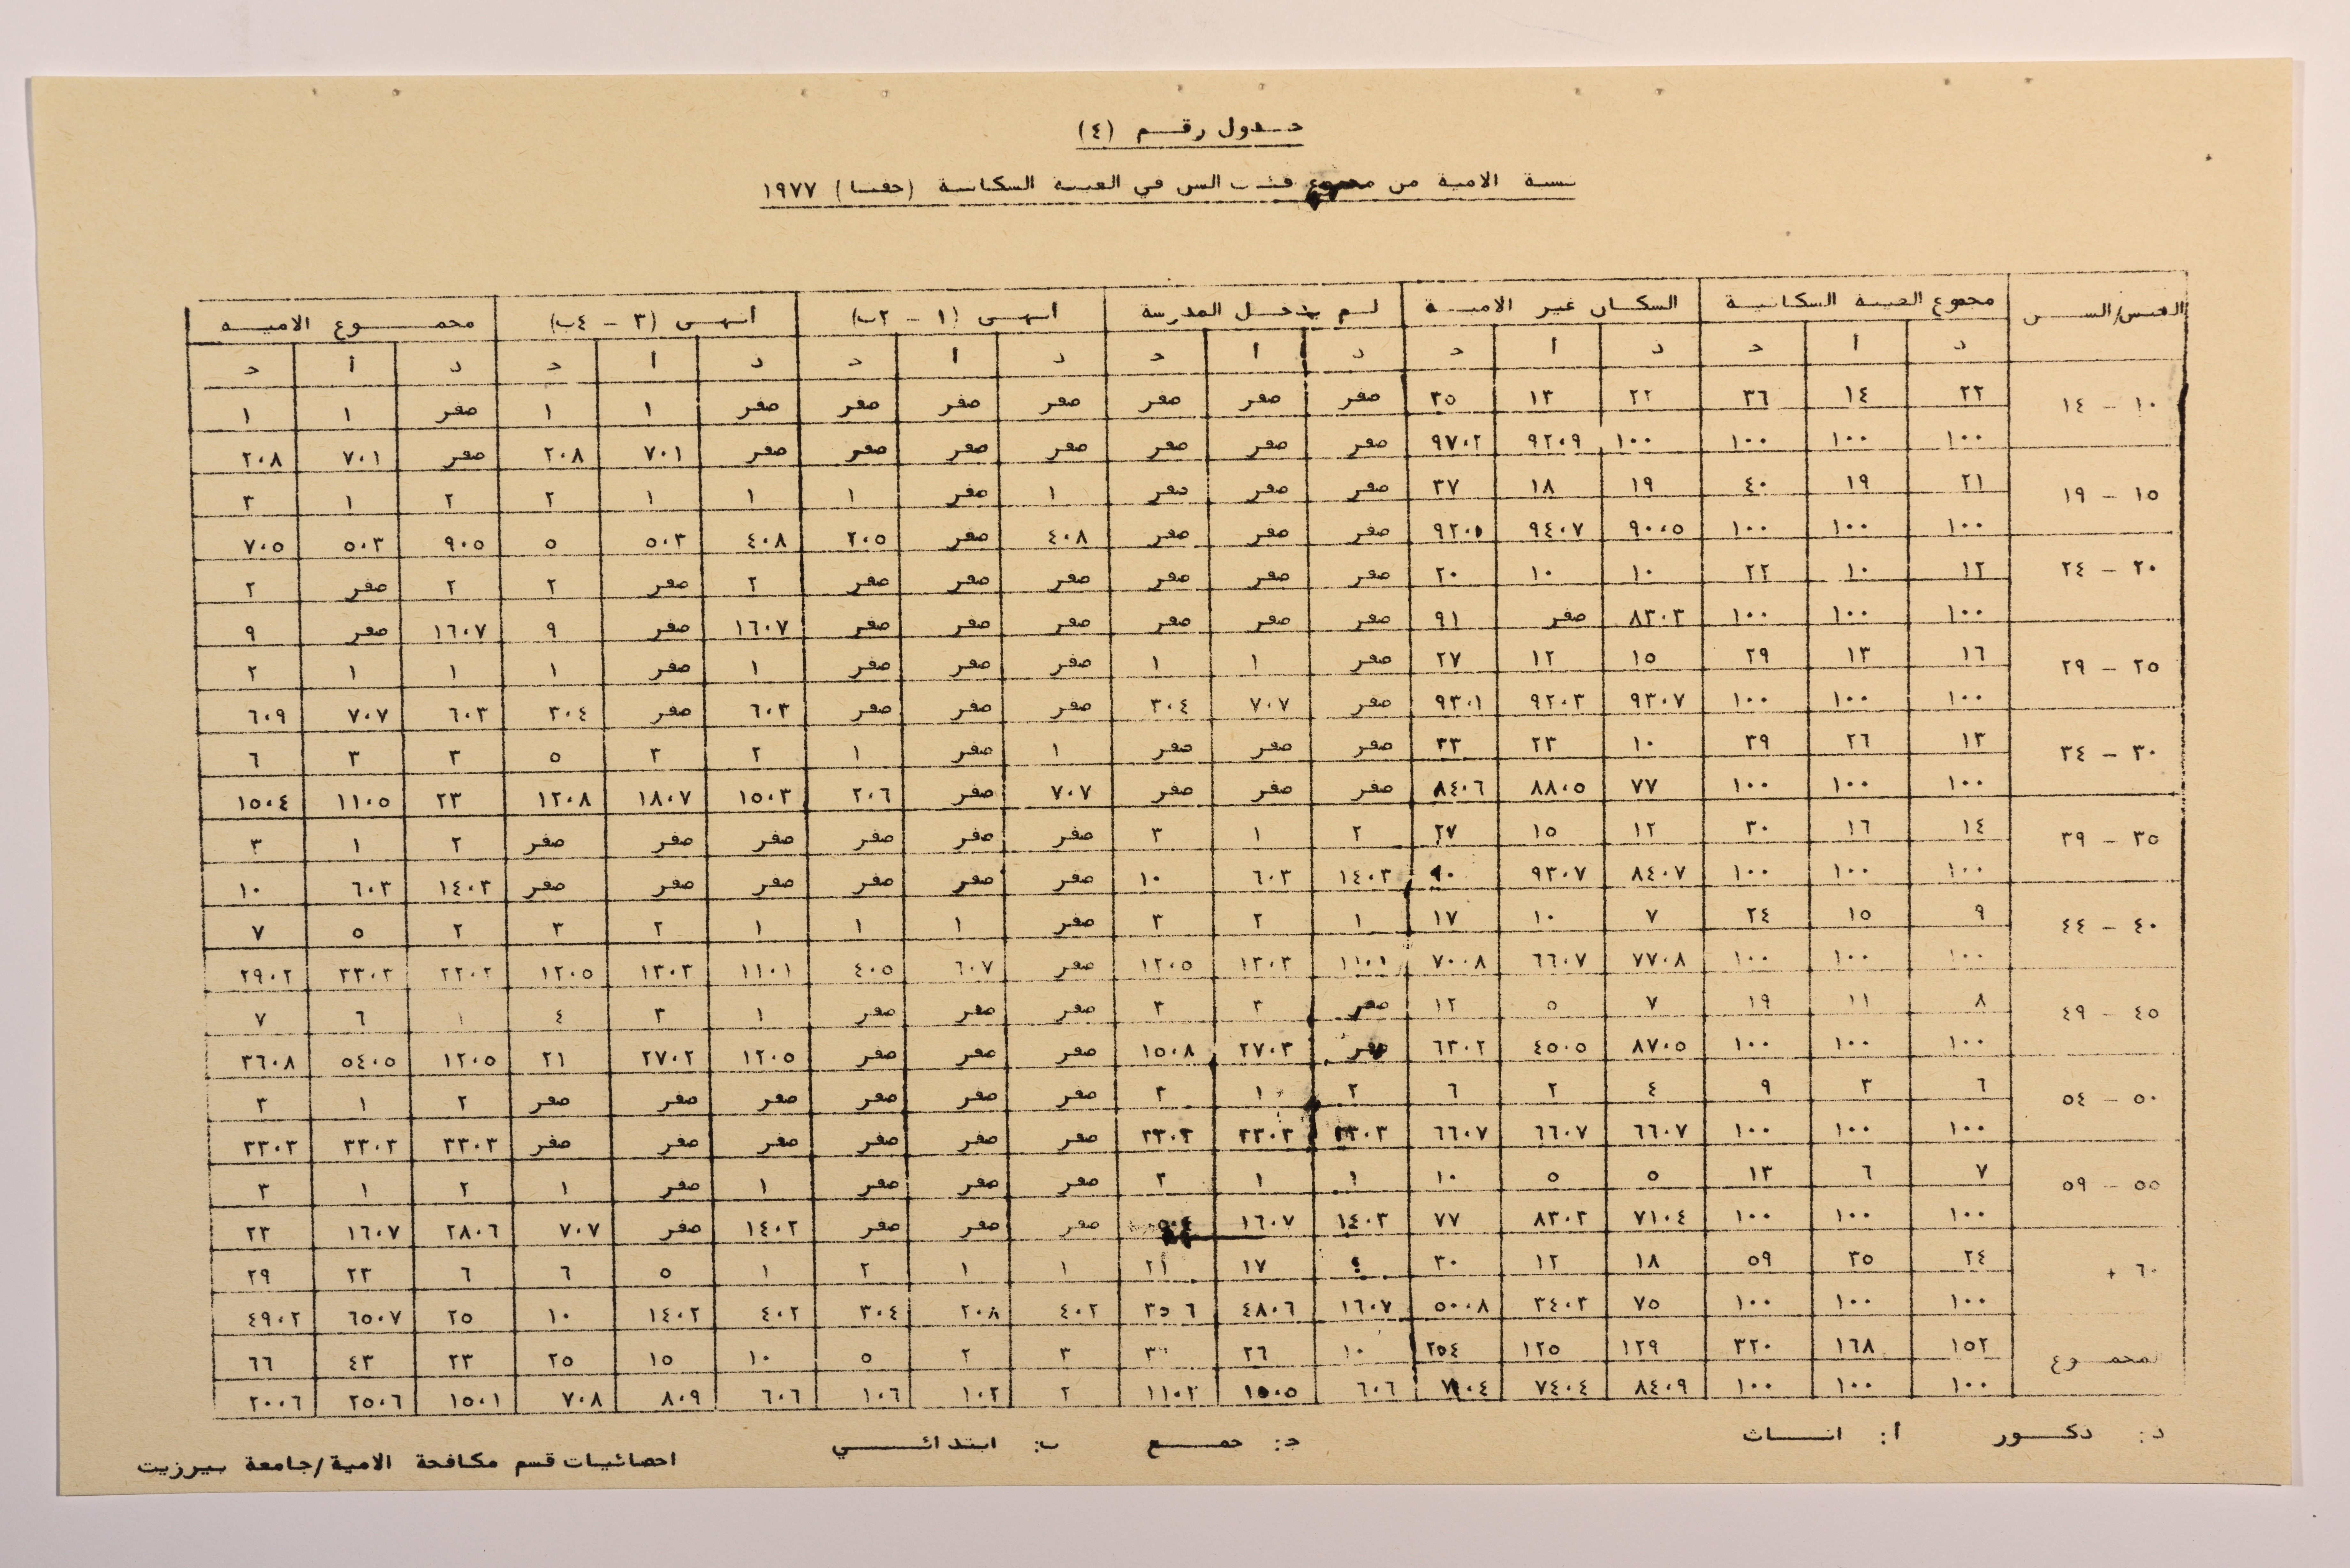 جدول رقم (٤)
نسبة الامية من مجموع فئات السن في العينة السكانية (جفنا) ١٩٧٧
الجنس/السن مجموع العينة السكانية السكان غير الامية لم يدخل المدرسة أنهى (١ - ٢ب) أنهى (٣ - ٤ب) مجموع الامية
د أ ج د أ ج د أ ج د أ ج د أ ج د أ ج
١٠ - ١٤ ٢٢ ١٤ ٣٦ ٢٢ ١٣ ٣٥ صفر صفر صفر صفر صفر صفر صفر ١ ١ صفر ١ ١
١٠٠ ١٠٠ ١٠٠ ١٠٠ ٩٢٠٩ ٩٧٠٢ صفر صفر صفر صفر صفر صفر صفر ٧٠١ ٢٠٨ صفر ٧٠١ ٢٠٨
١٥ - ١٩ ٢١ ١٩ ٤٠ ١٩ ١٨ ٣٧ صفر صفر صفر ١ صفر ١ ١ ١ ٢ ٢ ١ ٣
١٠٠ ١٠٠ ١٠٠ ٩٠٠٥ ٩٤٠٧ ٩٢٠٥ صفر صفر صفر ٤٠٨ صفر ٢٠٥ ٤٠٨ ٥٠٣ ٥ ٩٠٥ ٥٠٣ ٧٠٥
٢٠ - ٢٤ ١٢ ١٠ ٢٢ ١٠ ١٠ ٢٠ صفر صفر صفر صفر صفر صفر ٢ صفر ٢ ٢ صفر ٢
١٠٠ ١٠٠ ١٠٠ ٨٣٠٣ صفر ٩١ صفر صفر صفر صفر صفر صفر ١٦٠٧ صفر ٩ ١٦٠٧ صفر ٩
٢٥ - ٢٩ ١٦ ١٣ ٢٩ ١٥ ١٢ ٢٧ صفر ١ ١ صفر صفر صفر ١ صفر ١ ١ ١ ٢
١٠٠ ١٠٠ ١٠٠ ٩٣٠٧ ٩٢٠٣ ٩٣٠١ صفر ٧٠٧ ٣٠٤ صفر صفر صفر ٦٠٣ صفر ٣٠٤ ٦٠٣ ٧٠٧ ٦٠٩
٣٠ - ٣٤ ١٣ ٢٦ ٣٩ ١٠ ٢٣ ٣٣ صفر صفر صفر ١ صفر ١ ٢ ٣ ٥ ٣ ٣ ٦
١٠٠ ١٠٠ ١٠٠ ٧٧ ٨٨٠٥ ٨٤٠٦ صفر صفر صفر ٧٠٧ صفر ٢٠٦ ١٥٠٣ ١٨٠٧ ١٢٠٨ ٢٣ ١١٠٥ ١٥٠٤
٣٥ - ٣٩ ١٤ ١٦ ٣٠ ١٢ ١٥ ٢٧ ٢ ١ ٣ صفر صفر صفر صفر صفر صفر ٢ ١ ٣
١٠٠ ١٠٠ ١٠٠ ٨٤٠٧ ٩٣٠٧ ٩٠ ١٤٠٣ ٦٠٣ ١٠ صفر صفر صفر صفر صفر صفر ١٤٠٣ ٦٠٣ ١٠
٤٠ - ٤٤ ٩ ١٥ ٢٤ ٧ ١٠ ١٧ ١ ٢ ٣ صفر ١ ١ ١ ٢ ٣ ٢ ٥ ٧
١٠٠ ١٠٠ ١٠٠ ٧٧٠٨ ٦٦٠٧ ٧٠٠٨ ١١٠١ ١٣٠٣ ١٢٠٥ صفر ٦٠٧ ٤٠٥ ١١٠١ ١٣٠٣ ١٢٠٥ ٢٢٠٢ ٣٣٠٣ ٢٩٠٢
٤٥ - ٤٩ ٨ ١١ ١٩ ٧ ٥ ١٢ صفر ٣ ٣ صفر صفر صفر ١ ٣ ٤ ١ ٦ ٧
١٠٠ ١٠٠ ١٠٠ ٨٧٠٥ ٤٥٠٥ ٦٣٠٢ صفر ٢٧٠٣ ١٥٠٨ صفر صفر صفر ١٢٠٥ ٢٧٠٢ ٢١ ١٢٠٥ ٥٤٠٥ ٣٦٠٨
٥٠ - ٥٤ ٦ ٣ ٩ ٤ ٢ ٦ ٢ ١ ٣ صفر صفر صفر صفر صفر صفر ٢ ١ ٣
١٠٠ ١٠٠ ١٠٠ ٦٦٠٧ ٦٦٠٧ ٦٦٠٧ ٣٣٠٣ ٣٣٠٣ ٣٣٠٣ صفر صفر صفر صفر صفر صفر ٣٣٠٣ ٣٣٠٣ ٣٣٠٣
٥٥ - ٥٩ ٧ ٦ ١٣ ٥ ٥ ١٠ ١ ١ ٢ صفر صفر صفر ١ صفر ١ ٢ ١ ٣
١٠٠ ١٠٠ ١٠٠ ٧١٠٤ ٨٣٠٣ ٧٧ ١٤٠٣ ١٦٠٧ صفر صفر صفر ١٤٠٢ صفر ٧٠٧ ٢٨٠٦ ١٦٠٧ ٢٣
٦٠ + ٢٤ ٣٥ ٥٩ ١٨ ١٢ ٣٠ ٤ ١٧ ٢١ ١ ١ ٢ ١ ٥ ٦ ٦ ٢٣ ٢٩
١٠٠ ١٠٠ ١٠٠ ٧٥ ٣٤٠٣ ٥٠٠٨ ١٦٠٧ ٤٨٠٦ ٣٥٠٦ ٤٠٢ ٢٠٨ ٣٠٤ ٤٠٢ ١٤٠٢ ١٠ ٢٥ ٦٥٠٧ ٤٩٠٢
المجموع ١٥٢ ١٦٨ ٣٢٠ ١٢٩ ١٢٥ ٢٥٤ ١٠ ٢٦ ٣ ٢ ٥ ١٠ ١٥ ٢٥ ٢٣ ٤٣ ٦٦
١٠٠ ١٠٠ ١٠٠ ٨٤٠٩ ٧٤٠٤ ٧٩٠٤ ٦٠٦ ١٥٠٥ ١١٠٢ ٢ ١٠٢ ١٠٦ ٦٠٦ ٨٠٩ ٧٠٨ ١٥٠١ ٢٥٠٦ ٢٠٠٦
د: ذكور أ: اناث ج: جمع ب: ابتدائي
احصائيات قسم مكافحة الامية/جامعة بيرزيت